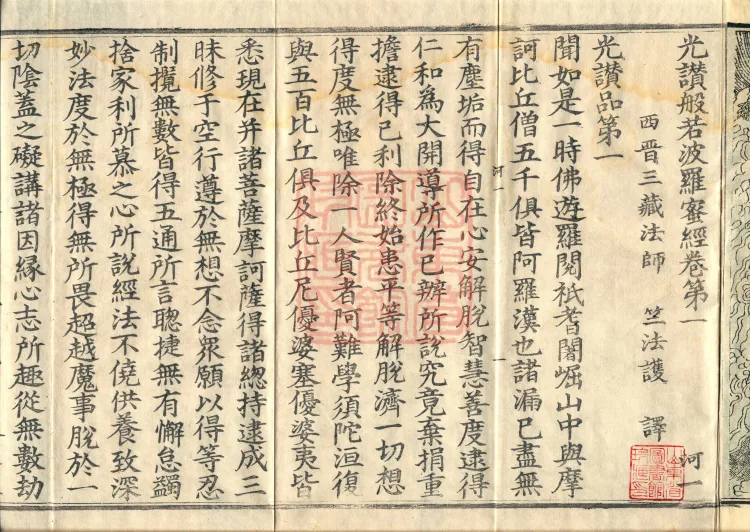 光讃般若波羅蜜經卷第一 河一
西晋三藏法師 竺法護 譯
光讃品第一
聞如是一時佛遊羅閱祇耆闍崛山中與摩
訶比丘僧五千俱皆阿羅漢也諸漏已盡無
有塵垢而得自在心安解脫智慧善度逮得
河一 一
仁和爲大開導所作已辦所說究竟棄捐重
擔逮得已利除終始患平等解脫濟一切想
得度無極唯除一人賢者阿難學須陀洹復
與五百比丘俱及比丘尼優婆塞優婆夷皆
悉現在并諸菩薩摩訶薩得諸總持逮成三
昧修于空行遵於無想不念衆願以得等忍
制攬無數皆得五通所言聦捷無有懈怠蠲
捨家利所慕之心所說經法不僥供養致深
妙法度於無極得無所畏超越魔事脫於一
切陰蓋之礙講諸因緣心志所趣從無數劫